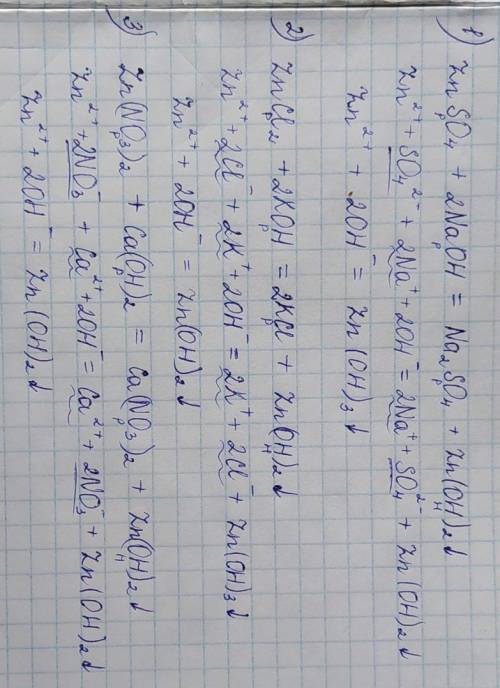 1) ZnSO₄ + 2NaOH = Na₂SO₄ + Zn(OH)₂↓
р р р н
Zn²⁺ + SO₄²⁻ + 2Na⁺ + 2OH⁻ = 2Na⁺ + SO₄²⁻ + Zn(OH)₂↓
Zn²⁺ + 2OH⁻ = Zn(OH)₃↓
2) ZnCl₂ + 2KOH = 2KCl + Zn(OH)₂↓
н
Zn²⁺ + 2Cl⁻ + 2K⁺ + 2OH⁻ = 2K⁺ + 2Cl⁻ + Zn(OH)₃↓
Zn²⁺ + 2OH⁻ = Zn(OH)₂↓
3) Zn(NO₃)₂ + Ca(OH)₂ = Ca(NO₃)₂ + Zn(OH)₂↓
р р р н
Zn²⁺ + 2NO₃⁻ + Ca²⁺ + 2OH⁻ = Ca²⁺ + 2NO₃⁻ + Zn(OH)₂↓
Zn²⁺ + 2OH⁻ = Zn(OH)₂↓